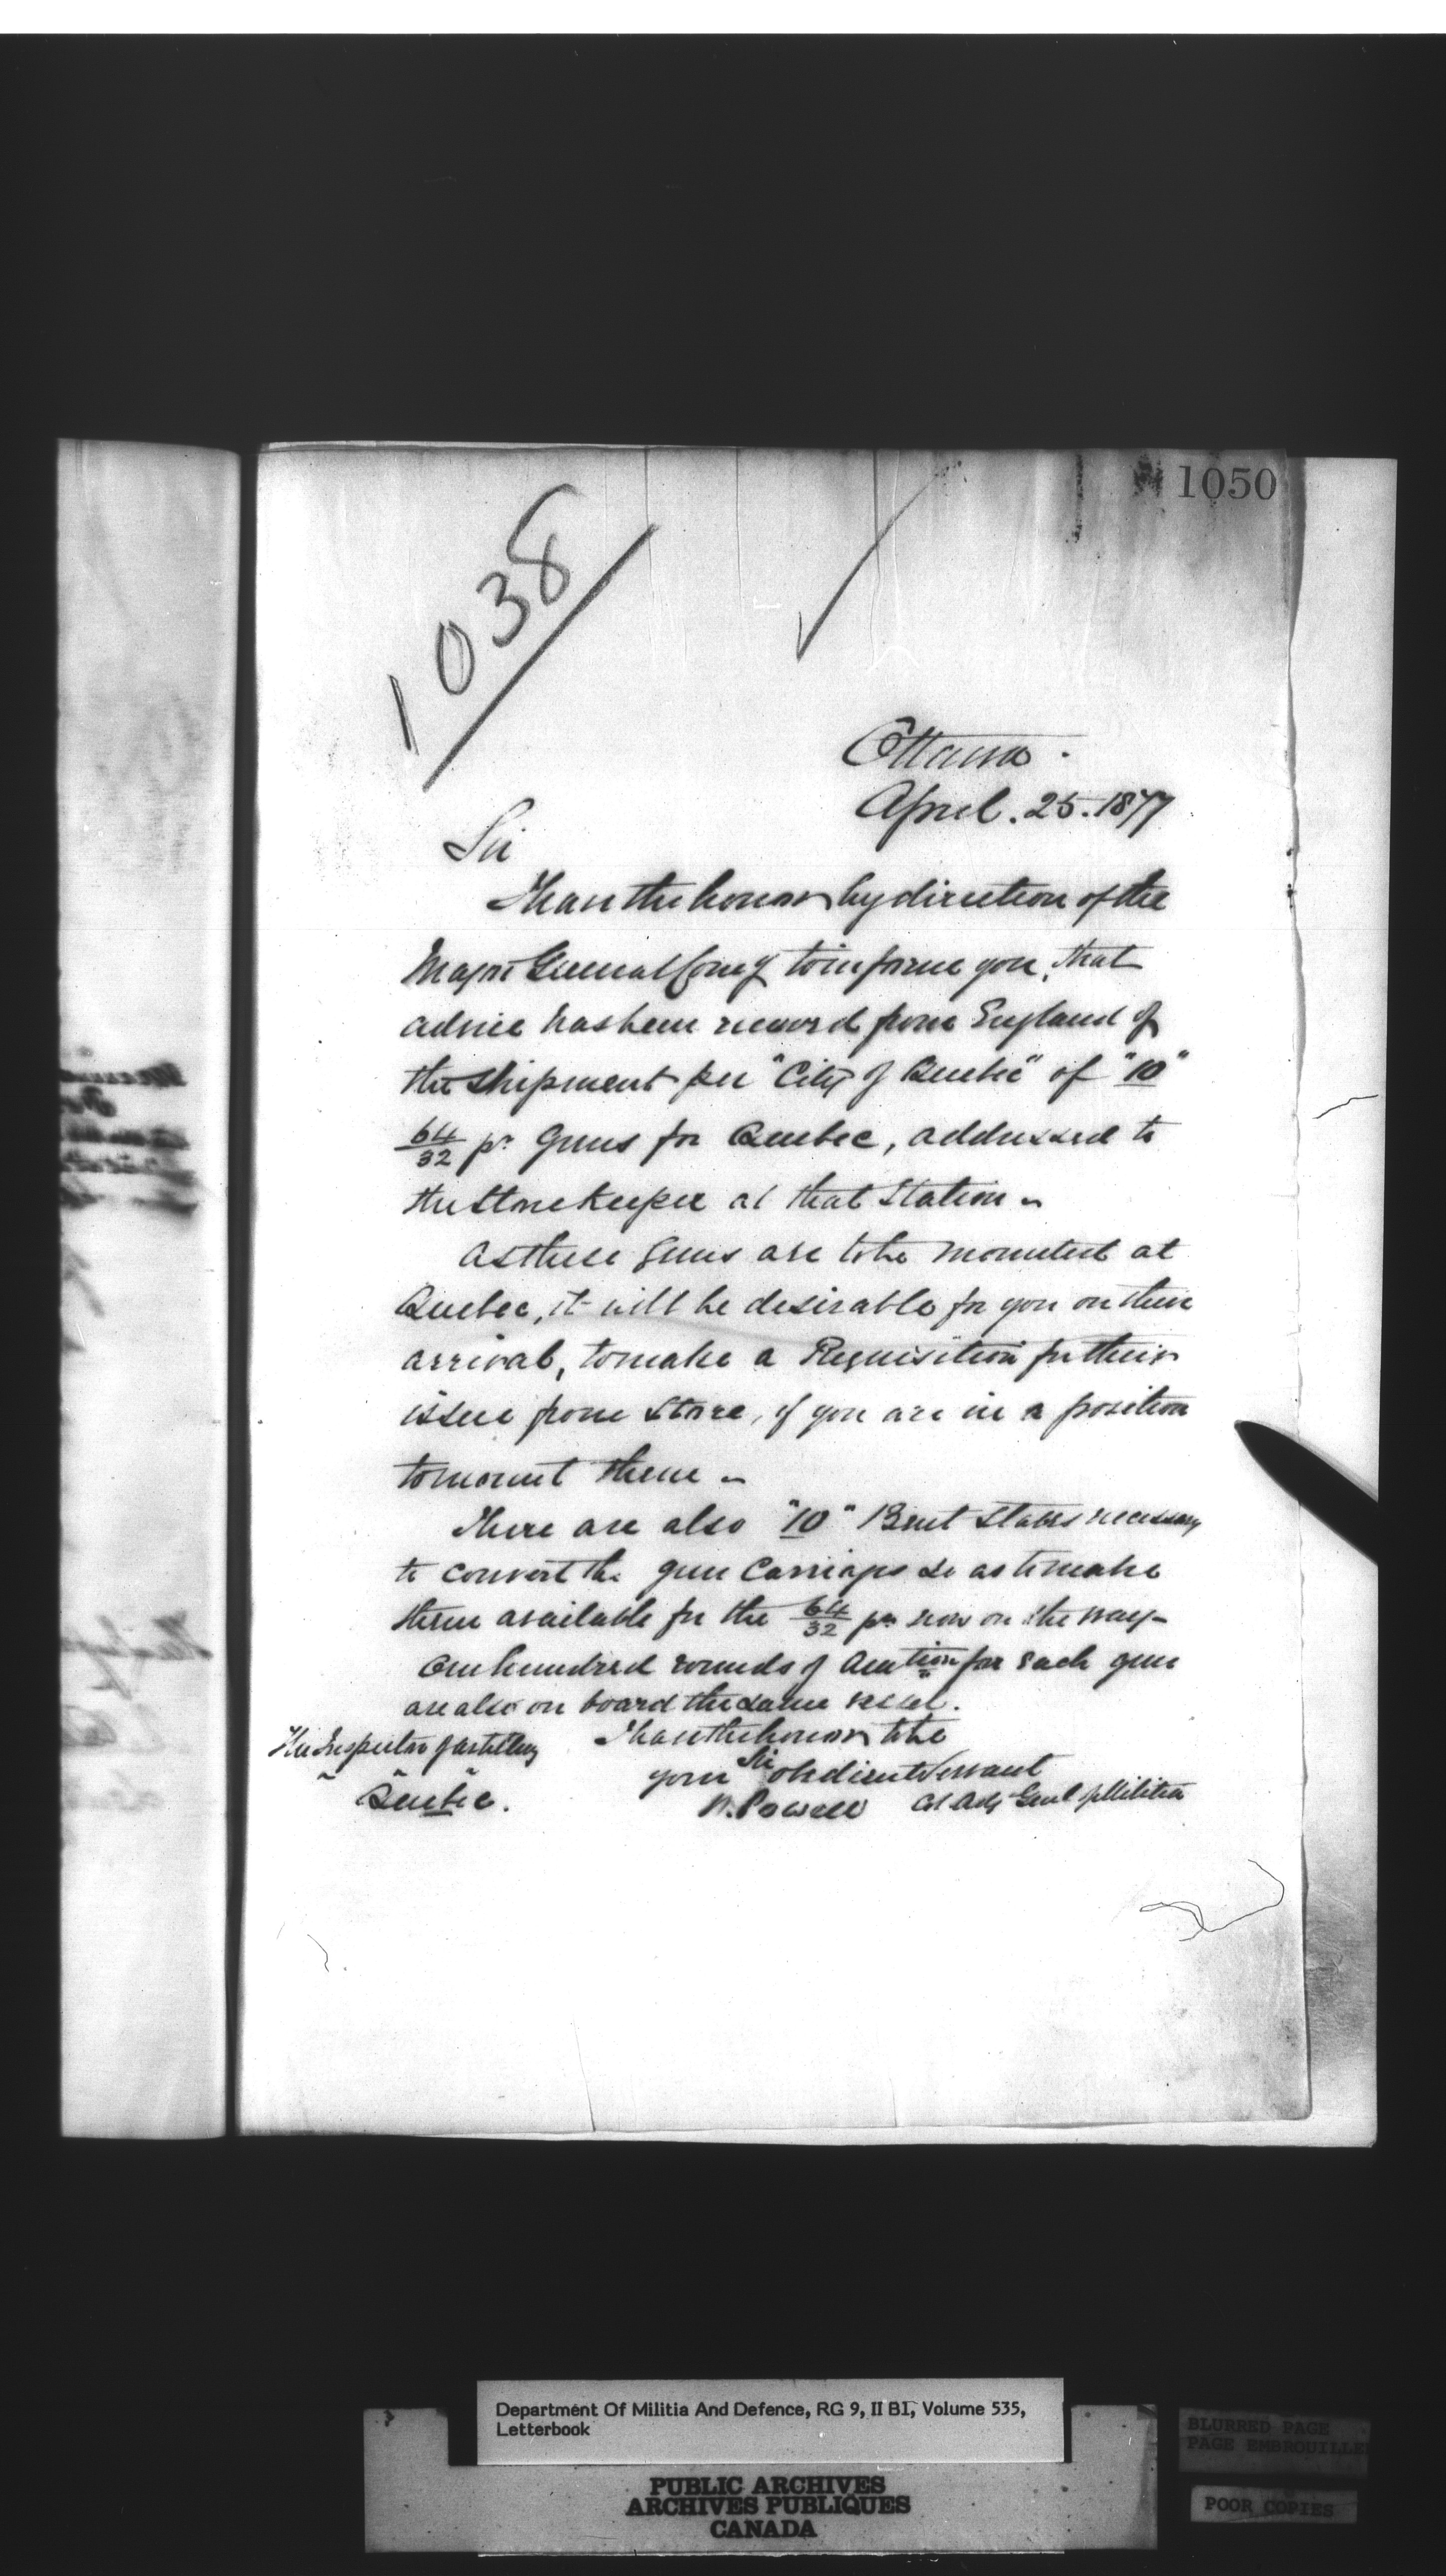 1050
1038
Ottawa.
April. 25. 1877
Sir
I have the honor by direction of the
Major General Comg to inform you, that
advice has been received from England of
the shipment per "City of Quebec" of "10"
64/32 pr Guns for Quebec, addressed to
the Storekeeper at that Station -
As these guns are to be mounted at
Quebec, it will be desirable for you on their
arrival, to make a Requisition for their
issue from Store, if you are in a position
to mount them -
There are also "10" necessary
to convert the gun Carriages so as to make
them available for the 64/32 pr now on the way -
One hundred rounds of for each gun
are also on board the same vessel.
I have the honor to be
Sir
your obedient Servant
The Inspector of Artillery
Quebec.
W. Powell Col Adj Genl of Militia
Department Of Militia And Defence, RG 9, II B1, Volume 535,
Letterbook
PUBLIC ARCHIVES
ARCHIVES PUBLIQUES
CANADA
BLURRED PAGE
PAGE EMBROUILLE
POOR COPIES